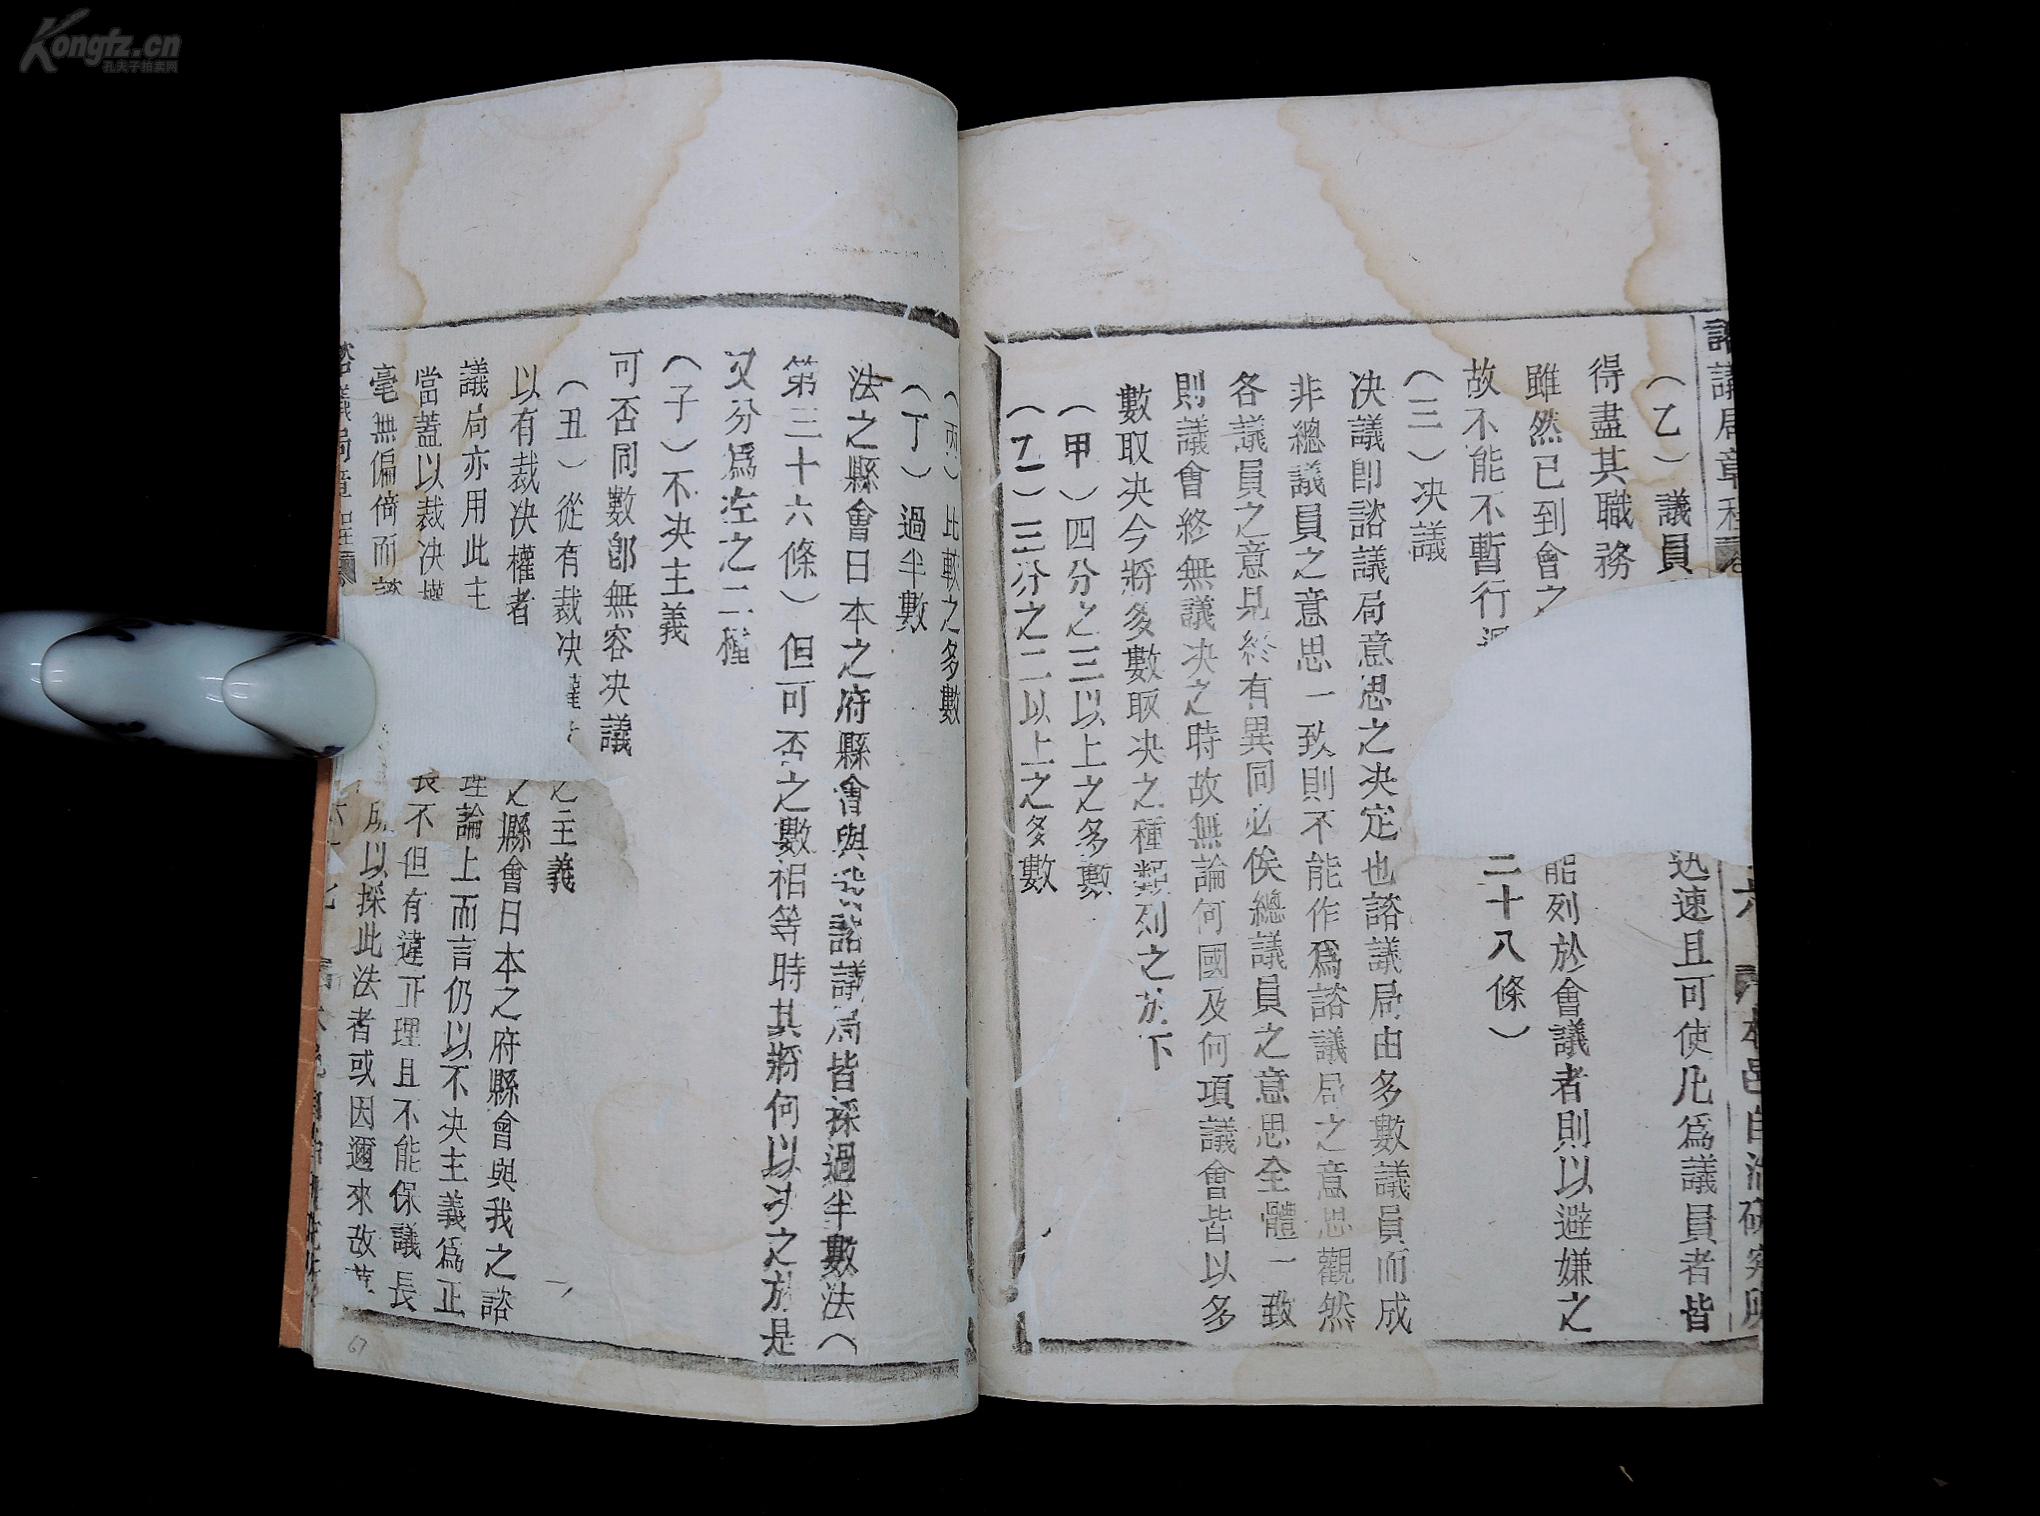 Kongfz.cn
孔夫子拍卖网
諮議局章程
本邑自治研究所
（乙）議員
迅速且可使凡為議員者皆
得盡其職務
雖然已到會之
能列於會議者則以避嫌之
故不能不暫行
二十八條）
（三）决議
决議卽諮議局意思之决定也諮議局由多數議員而成
非總議員之意思一致則不能作為諮議局之意思觀然
各議員之意見終有異同必俟總議員之意思全體一致
則議會終無議决之時故無論何國及何項議會皆以多
數取决今將多數取决之種類列之於下
（甲）四分之三以上之多數
（乙）三分之二以上之多數
（丙）比較之多數
（丁）過半數
法之縣會日本之府縣會與我諮議局皆採過半數法（
第三十六條）但可否之數相等時其將何以决之於是
又分為左之二種
（子）不决主義
可否同數卽無容决議
（丑）從有裁决權
之主義
以有裁决權者
之縣會日本之府縣會與我之諮
議局亦用此主
理論上而言仍以不决主義為正
當蓋以裁决權
長不但有違正理且不能保議長
毫無偏倚而
所以採此法者或因邇來改革
67